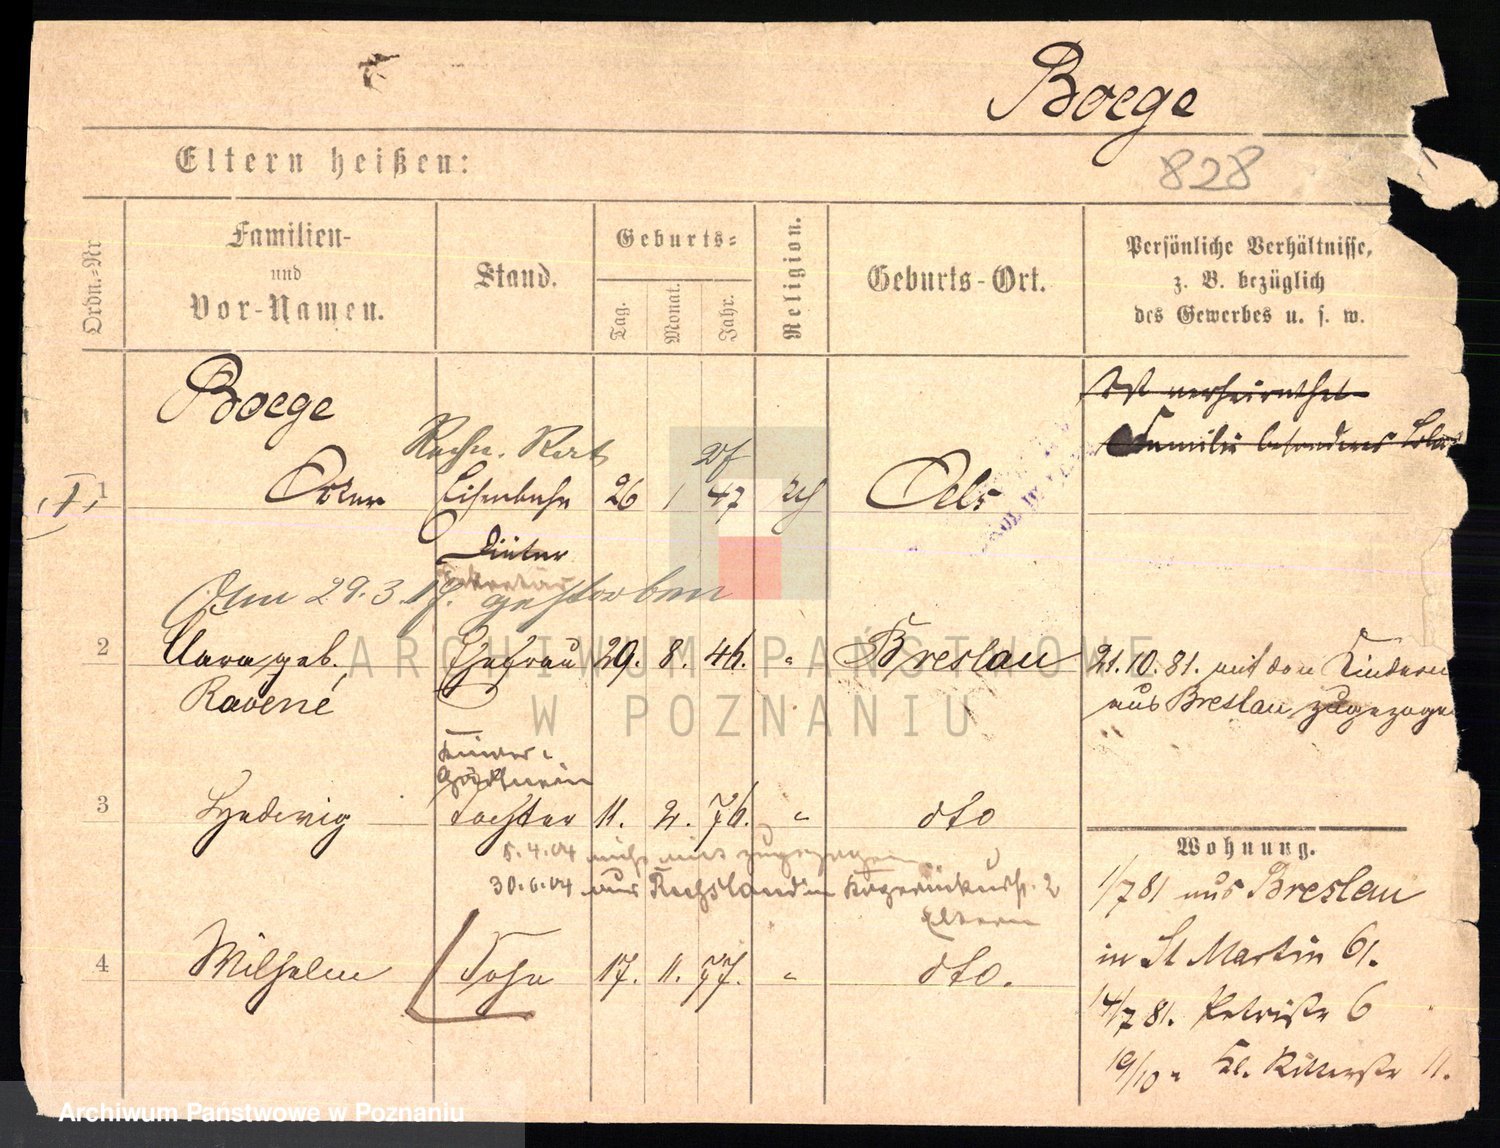 Boege
828
Eltern heißen:
Ordn.-Nr.
Familien-
und
Vor-Namen.
Stand.
Geburts-
Tag.
Monat.
Jahr.
Religion.
Geburts-Ort.
Persönliche Verhältnisse,
z. B. bezüglich
des Gewerbes u. s. w.
Boege
Ist verheirathet
Familie besonderes
Rechn. Rat
1 Oscar Eisenbahn 26 1 47 Oels
Am 29.3.17. gestorben
2 Clara, geb. Ehefrau 29. 8. 46. " Breslau 21.10.81. mit den Kindern
Ravené aus Breslau zugezoge
3 Hedwig Tochter 11. 2. 76. " dto
5.4.04 nicht mit zugezogen
30.6.04 aus Eltern
4 Wilhelm Sohn 17. 11. 77. " dto.
Wohnung.
1/7 81 aus Breslau
in St Martin 61.
14/7 81. Petristr 6
19/10 " Kl. Ritterstr 11.
ARCHIWUM PAŃSTWOWE
W POZNANIU
Archiwum Państwowe w Poznaniu